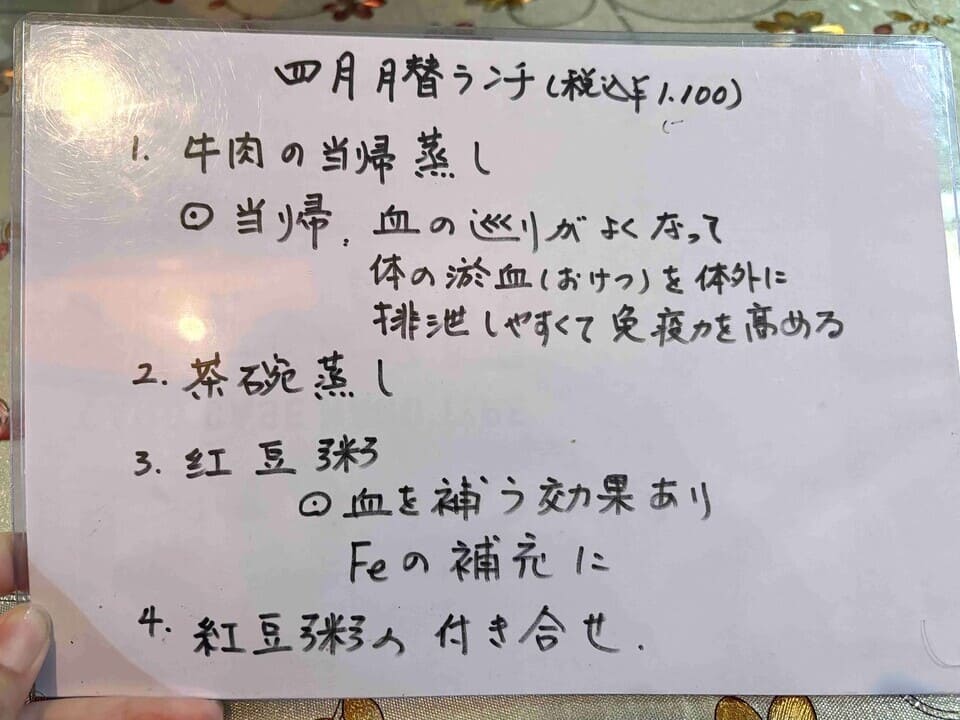 四月月替ランチ(税込¥1.100)
1. 牛肉の当帰蒸し
⊙当帰. 血の巡りがよくなって
体の淤血(おけつ)を体外に
排泄しやすくて免疫力を高める
2. 茶碗蒸し
3. 紅豆粥
⊙血を補う効果あり
Feの補充に
4. 紅豆粥の付き合せ.